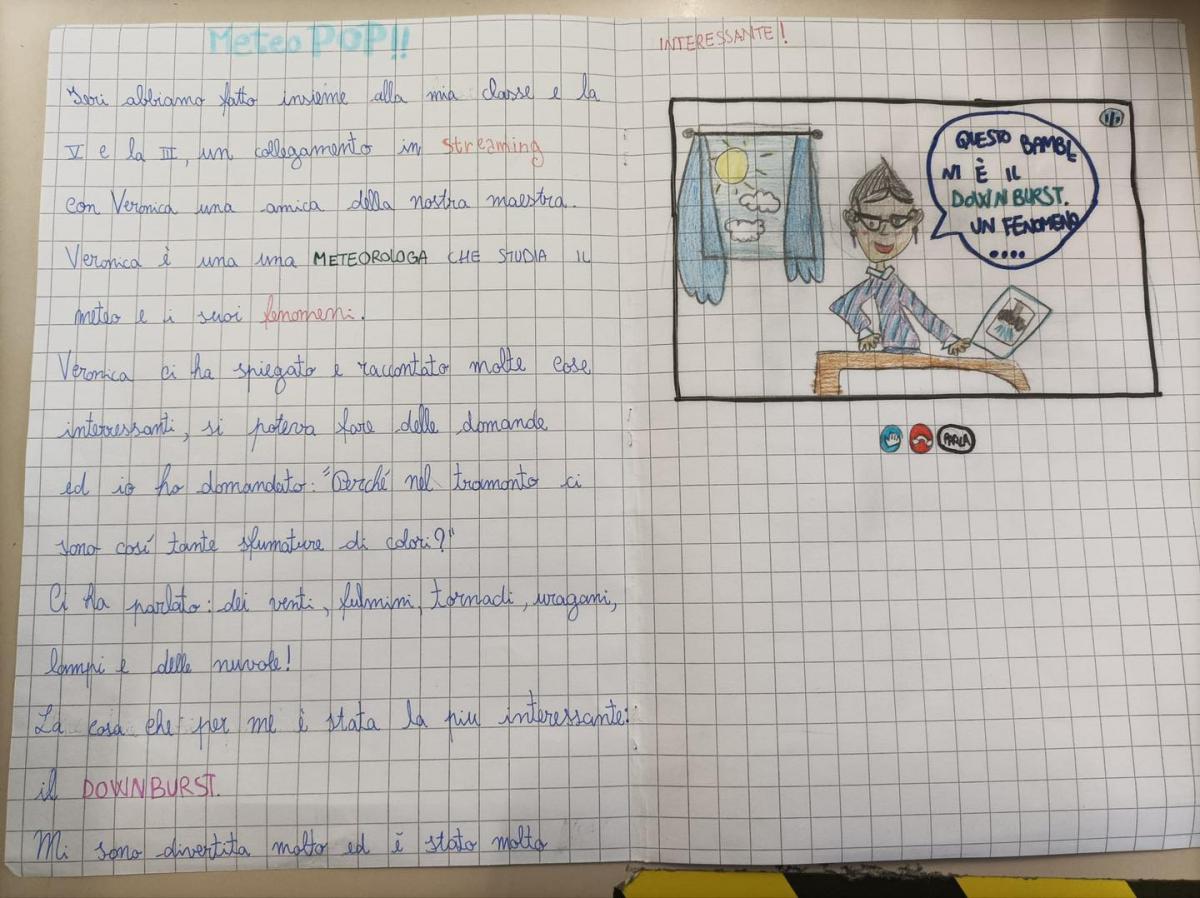 Meteo POP!!
Ieri abbiamo fatto insieme alla mia classe e la
V e la III, un collegamento in streaming
con Veronica una amica della nostra maestra.
Veronica è una una METEOROLOGA CHE STUDIA IL
meteo e i suoi fenomeni.
Veronica ci ha spiegato e raccontato molte cose
interressanti, si poteva fare delle domande
ed io ho domandato: "Perché nel tramonto ci
sono cosí tante sfumature di colori?"
Ci ha parlato: dei venti, fulmini, tornadi, uragani,
lampi e delle nuvole!
La cosa che per me è stata la piu interessante:
il DOWNBURST.
Mi sono divertita molto ed è stato molto
INTERESSANTE!
QUESTO BAMBI
NI È IL
DOWNBURST.
UN FENOMENO
....
PARLA